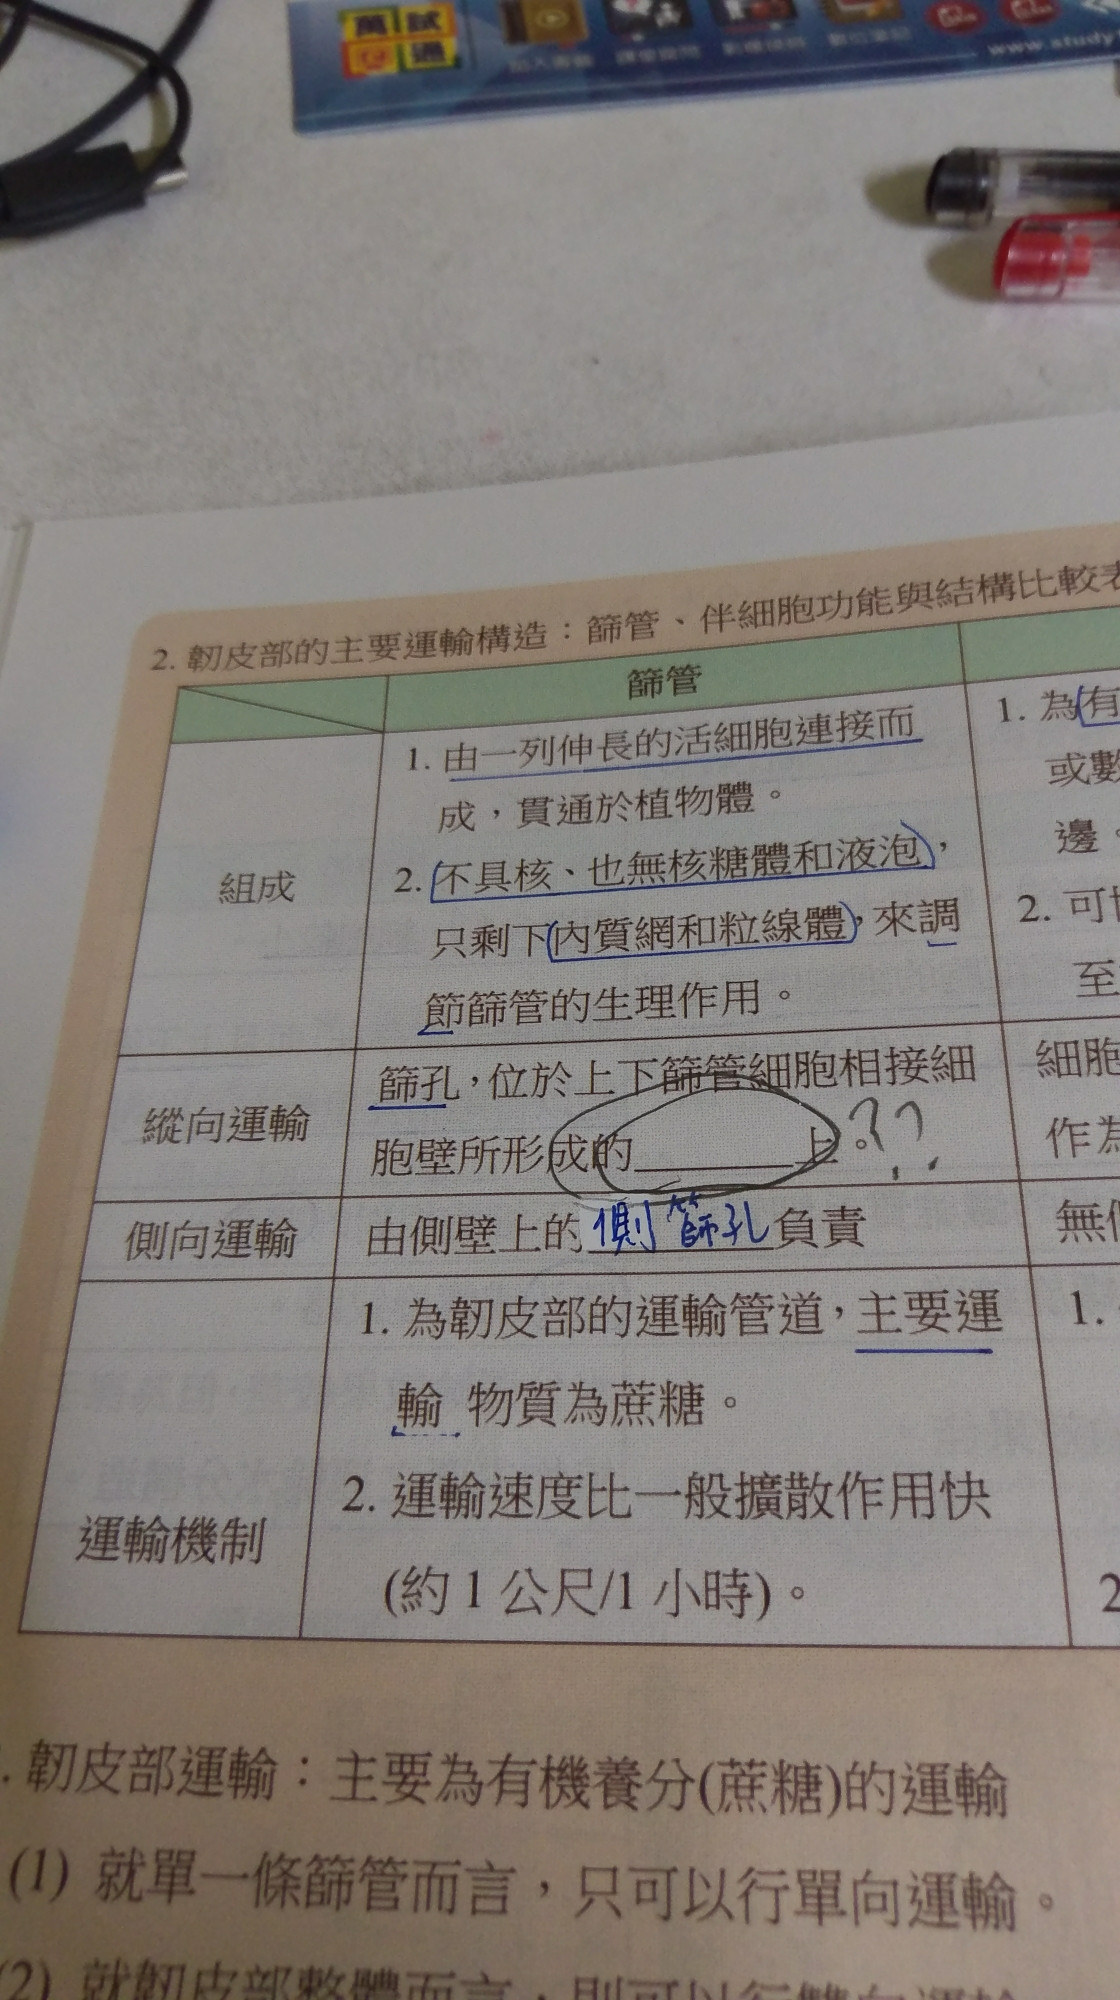 萬試
通
www.study
2. 韌皮部的主要運輸構造：篩管、伴細胞功能與結構比較表
篩管
組成
1. 由一列伸長的活細胞連接而
成，貫通於植物體。
2. 不具核、也無核糖體和液泡，
只剩下內質網和粒線體，來調
節篩管的生理作用。
1. 為有
或數
邊。
2. 可
至
縱向運輸
篩孔，位於上下篩管細胞相接細
胞壁所形成的________上。??
細胞
作為
側向運輸
由側壁上的側篩孔負責
無
運輸機制
1. 為韌皮部的運輸管道，主要運
輸 物質為蔗糖。
2. 運輸速度比一般擴散作用快
(約 1 公尺/1 小時)。
1.
2
. 韌皮部運輸：主要為有機養分(蔗糖)的運輸
(1) 就單一條篩管而言，只可以行單向運輸。
(2) 就韌皮部整體而言，則可以行雙向運輸